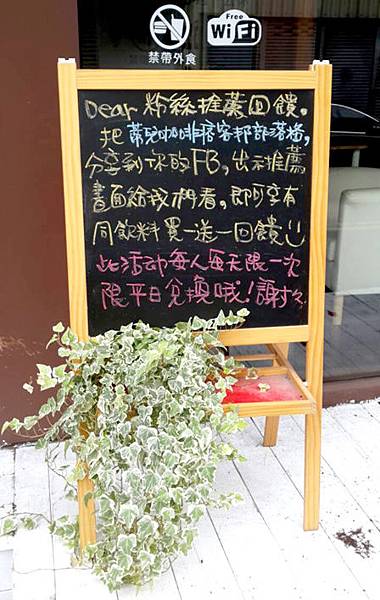 Free
WiFi
禁帶外食
Dear 粉絲推薦回饋。
把 蒂兒咖啡痞客邦部落格,
分享到你的FB, 出示推薦
畫面給我們看, 即可享有
同飲料買一送一回饋
此活動每人每天限一次
限平日兌換哦!謝謝